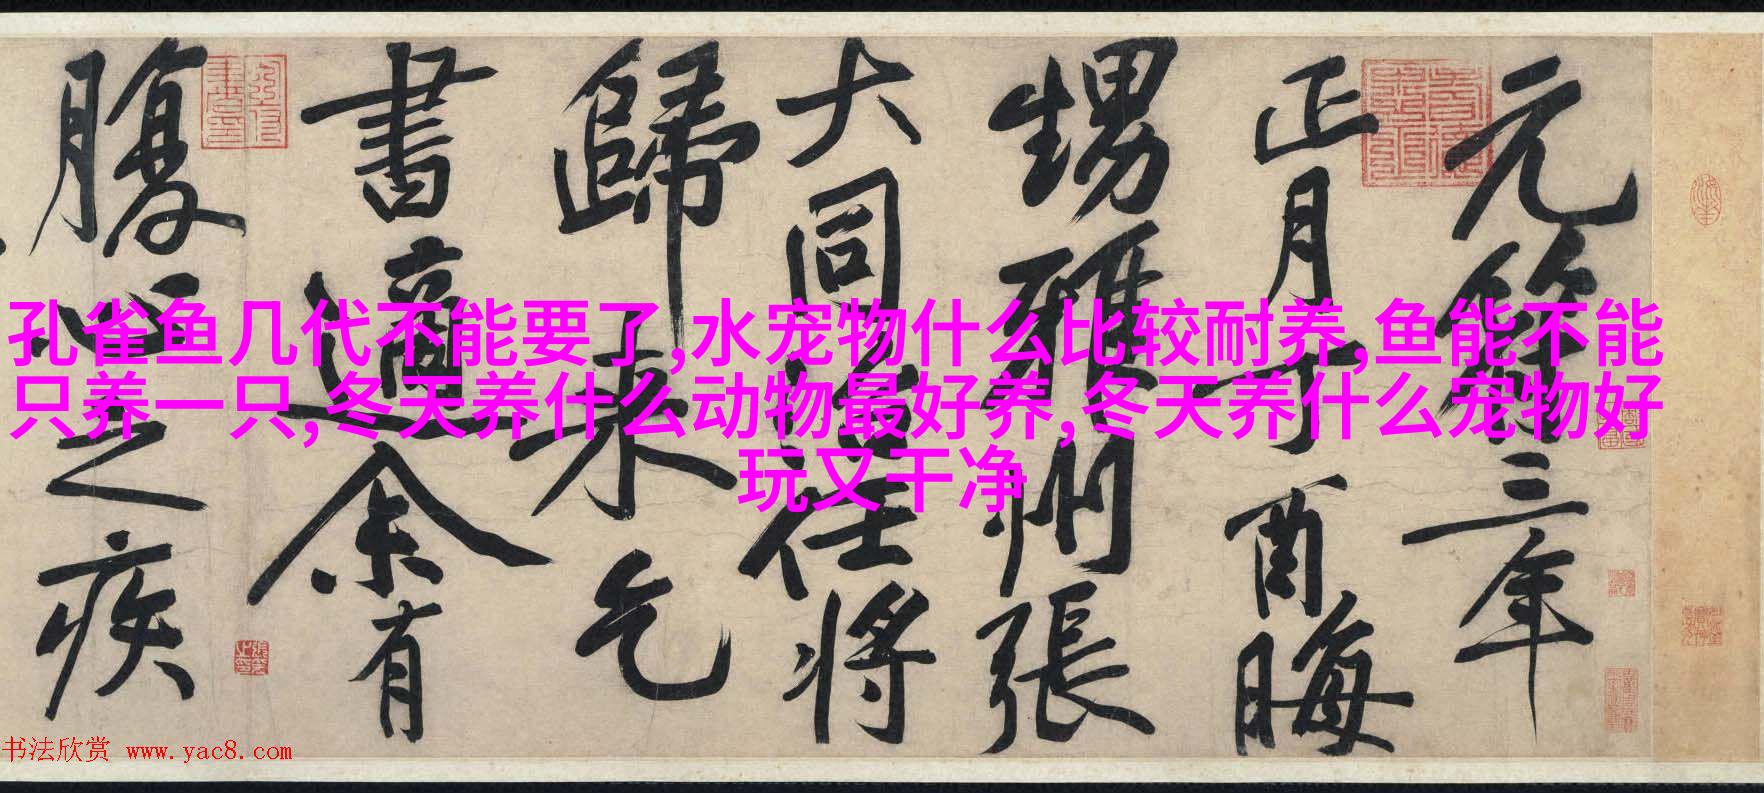 元符三年
正月丁酉晦
甥雅州張
大同治任將
歸來乞
書適余有
腹心之疾
孔雀鱼几代不能要了,水宠物什么比较耐养,鱼能不能
只养一只,冬天养什么动物最好养,冬天养什么宠物好
玩又干净
书法欣赏 www.yac8.com